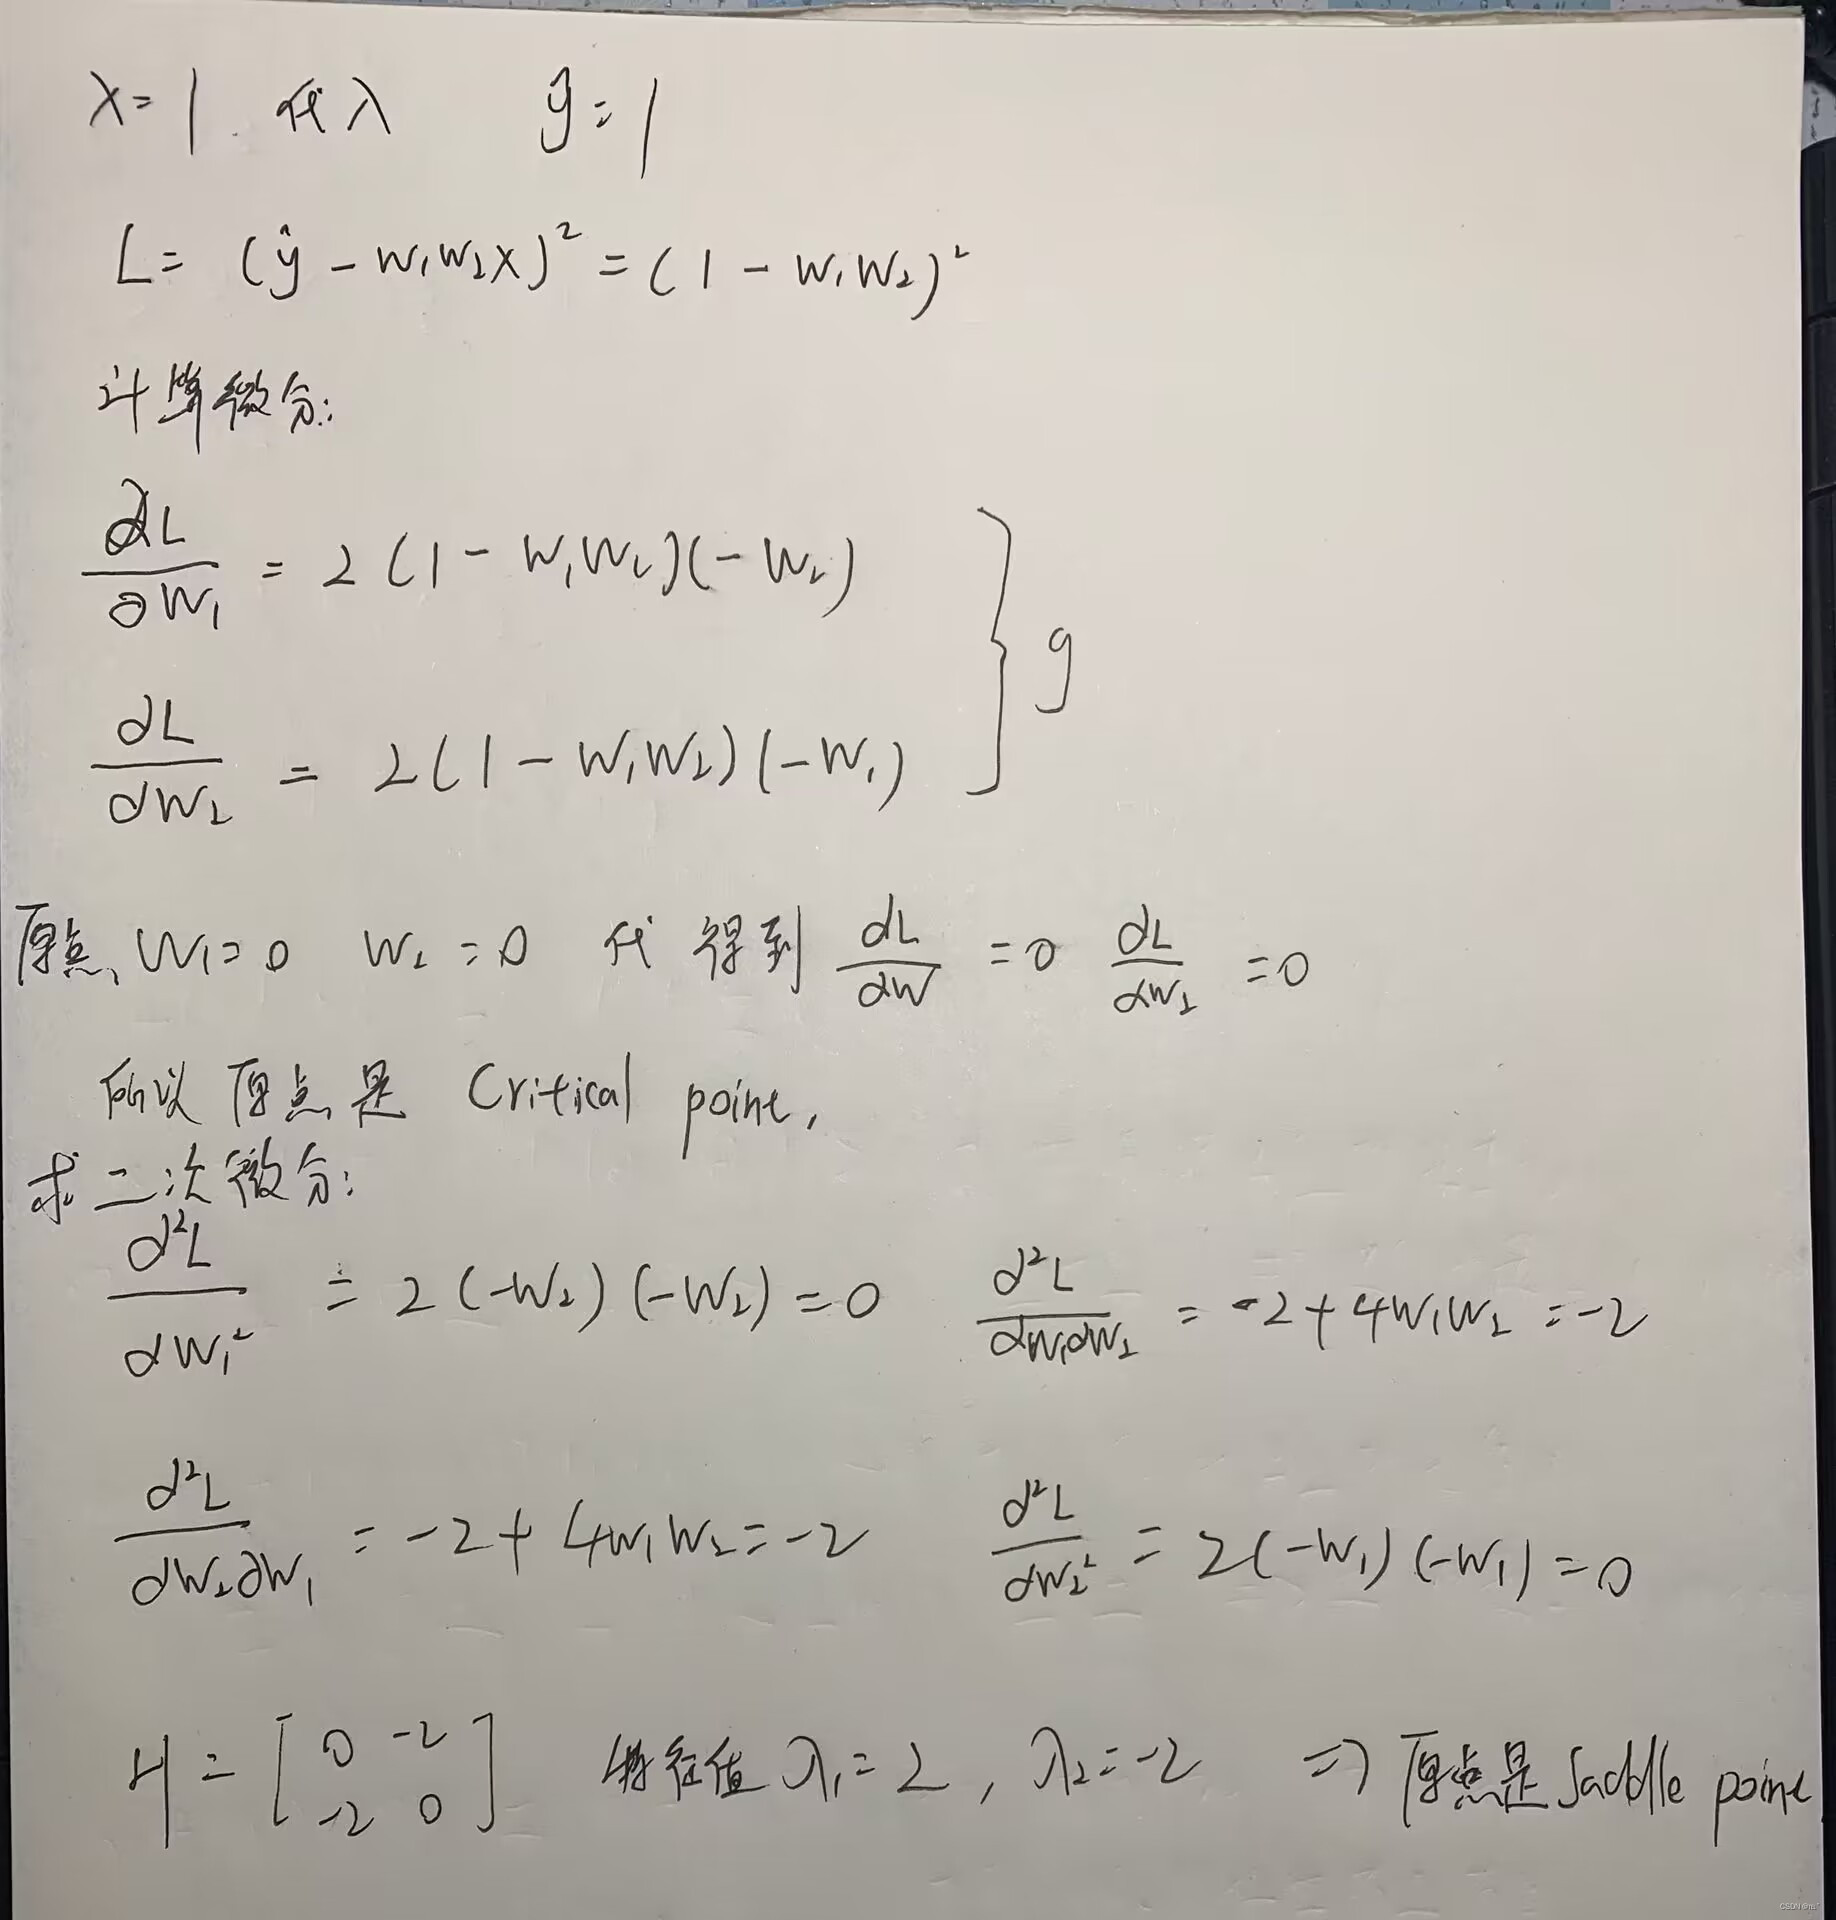 x=1 代入 ŷ=1
L= (ŷ - w₁w₂x)² = (1 - w₁w₂)²
计算微分:
∂L/∂w₁ = 2(1-w₁w₂)(-w₂)
g
∂L/∂w₂ = 2(1-w₁w₂)(-w₁)
原点, w₁=0 w₂=0 代 得到 ∂L/∂w =0 ∂L/∂w₂ =0
所以原点是 Critical point,
求二次微分:
∂²L/∂w₁² = 2(-w₂)(-w₂)=0 ∂²L/∂w₁∂w₂ = -2+4w₁w₂=-2
∂²L/∂w₂∂w₁ = -2+4w₁w₂=-2 ∂²L/∂w₂² = 2(-w₁)(-w₁)=0
H = [0 -2
-2 0] 特征值 λ₁=2, λ₂=-2 => 原点是 Saddle point